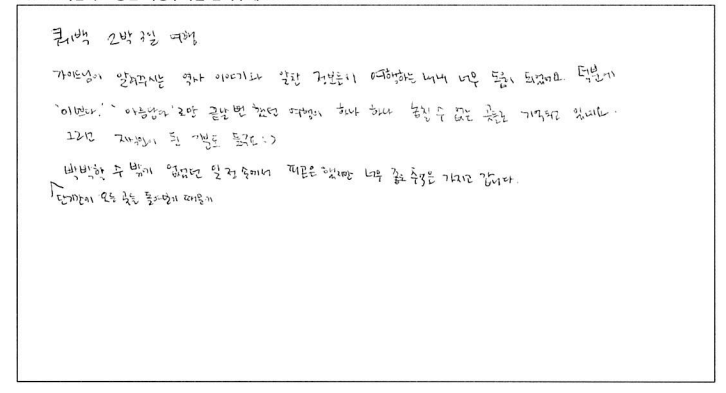 퀘백 2박 3일 여행
가이드님이 알려주시는 역사 이야기와 알찬 정보들이 여행하는 내내 너무 도움이 되었어요. 덕분에
'이쁘다.' '아름답다'로만 끝날 뻔 했던 여행이 하나 하나 놓칠 수 없는 곳들로 기억되고 있네요.
그리고 된 기분도 들구요 :)
빡빡할 수 밖에 없었던 일정 속에서 피곤은 했지만 너무 좋은 추억은 가지고 갑니다.
단기간에 모든 곳을 돌아보기 때문에